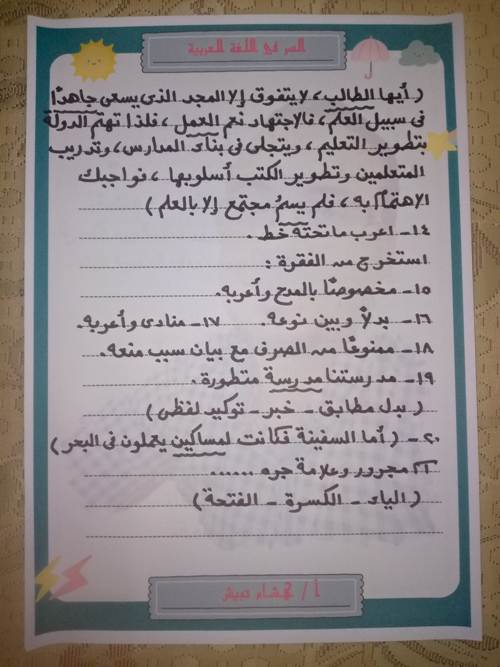 السر في اللغة العربية
( أيها الطالب ، لا يتفوق إلا المجد الذى يسعى جاهدًا
فى سبيل العلم ، فالاجتهاد نعم العمل ، فلذا تهتم الدولة
بتطوير التعليم ، ويتجلى فى بناء المدارس ، وتدريب
المتعلمين وتطوير الكتب أسلوبها ، فواجبك
الاهتمام به ، فلم يسمُ مجتمع إلا بالعلم )
١٤- اعرب ما تحته خط .
استخرج من الفقرة :
١٥- مخصوصًا بالمدح وأعربه .
١٦- بدلاً وبين نوعه . ١٧- منادى وأعربه .
١٨- ممنوعًا من الصرف مع بيان سبب منعه .
١٩- مدرستنا مدرسة متطورة .
( بدل مطابق - خبر - توكيد لفظى )
٢٠- ( أما السفينة فكانت لمساكين يعملون فى البحر )
مجرور وعلامة جره ......
( الياء - الكسرة - الفتحة )
أ / هشام